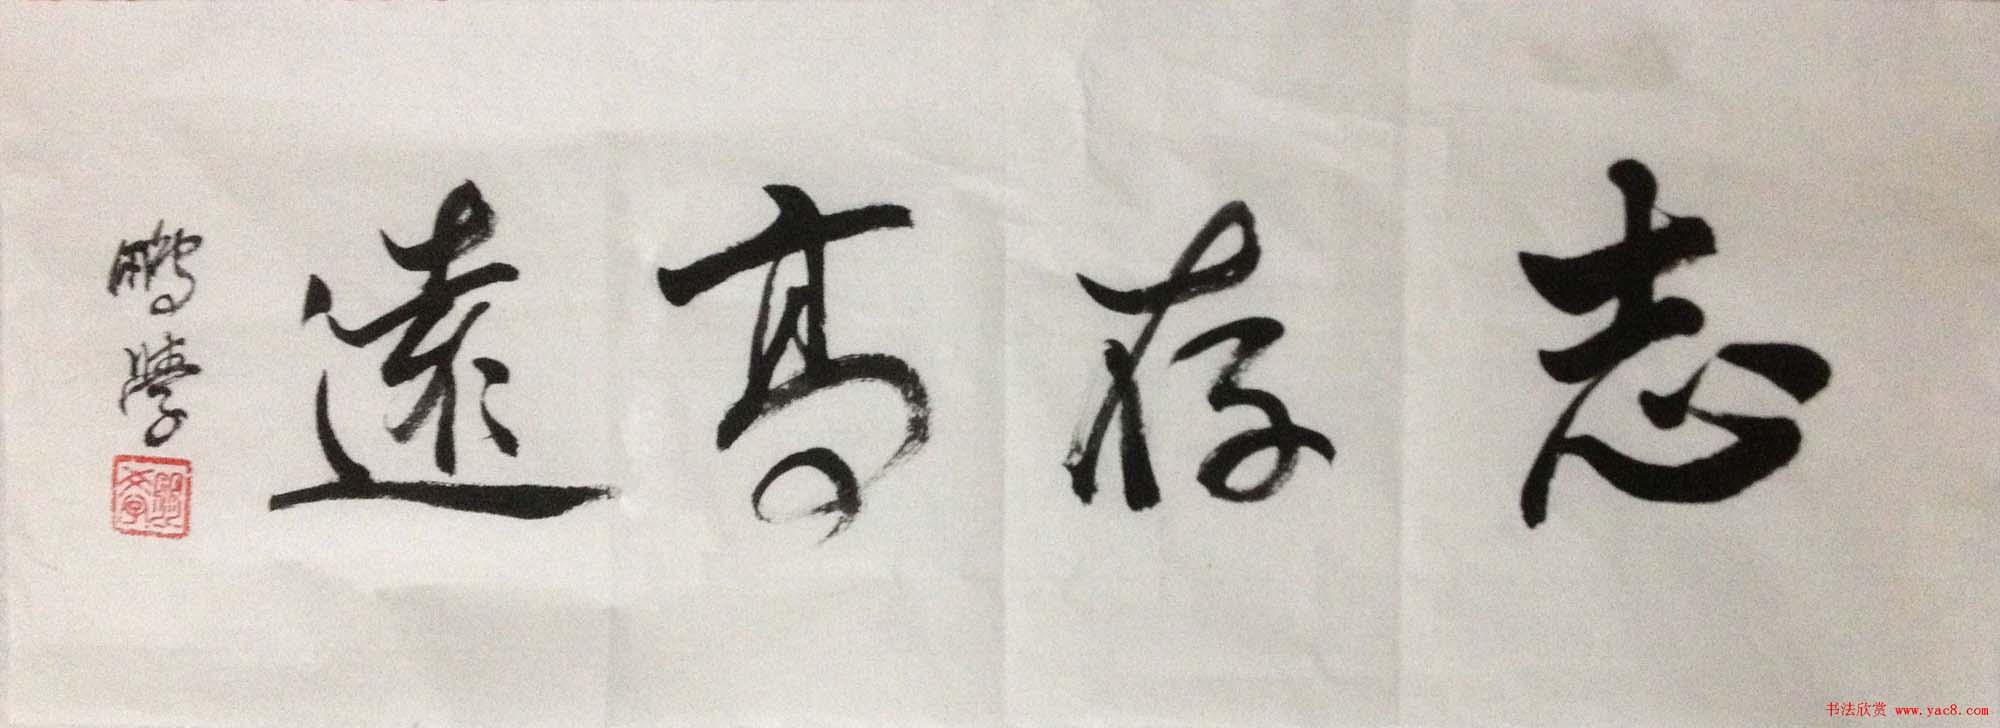 志存高遠
鵬學
书法欣赏 www.yac8.com